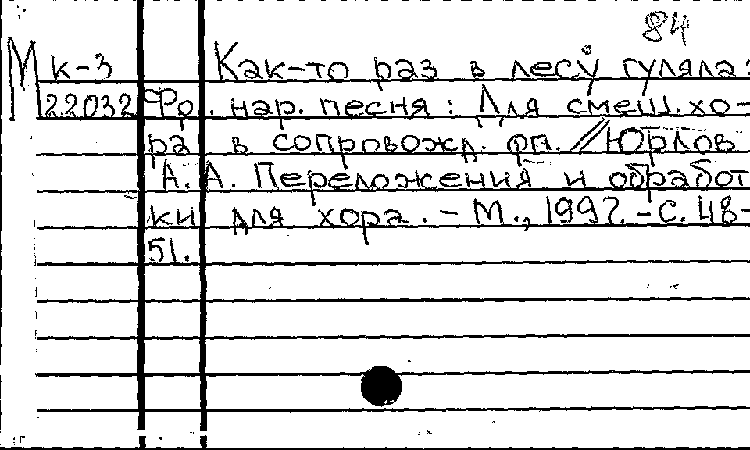 84
М к-3 Как-то раз в лесу гуляла:
22032 Фр. нар. песня: Для смеш. хо-
ра в сопровожд. фп. // Юрлов
А. А. Переложения и обработ
ки для хора. - М., 1997. - С. 48-
51.